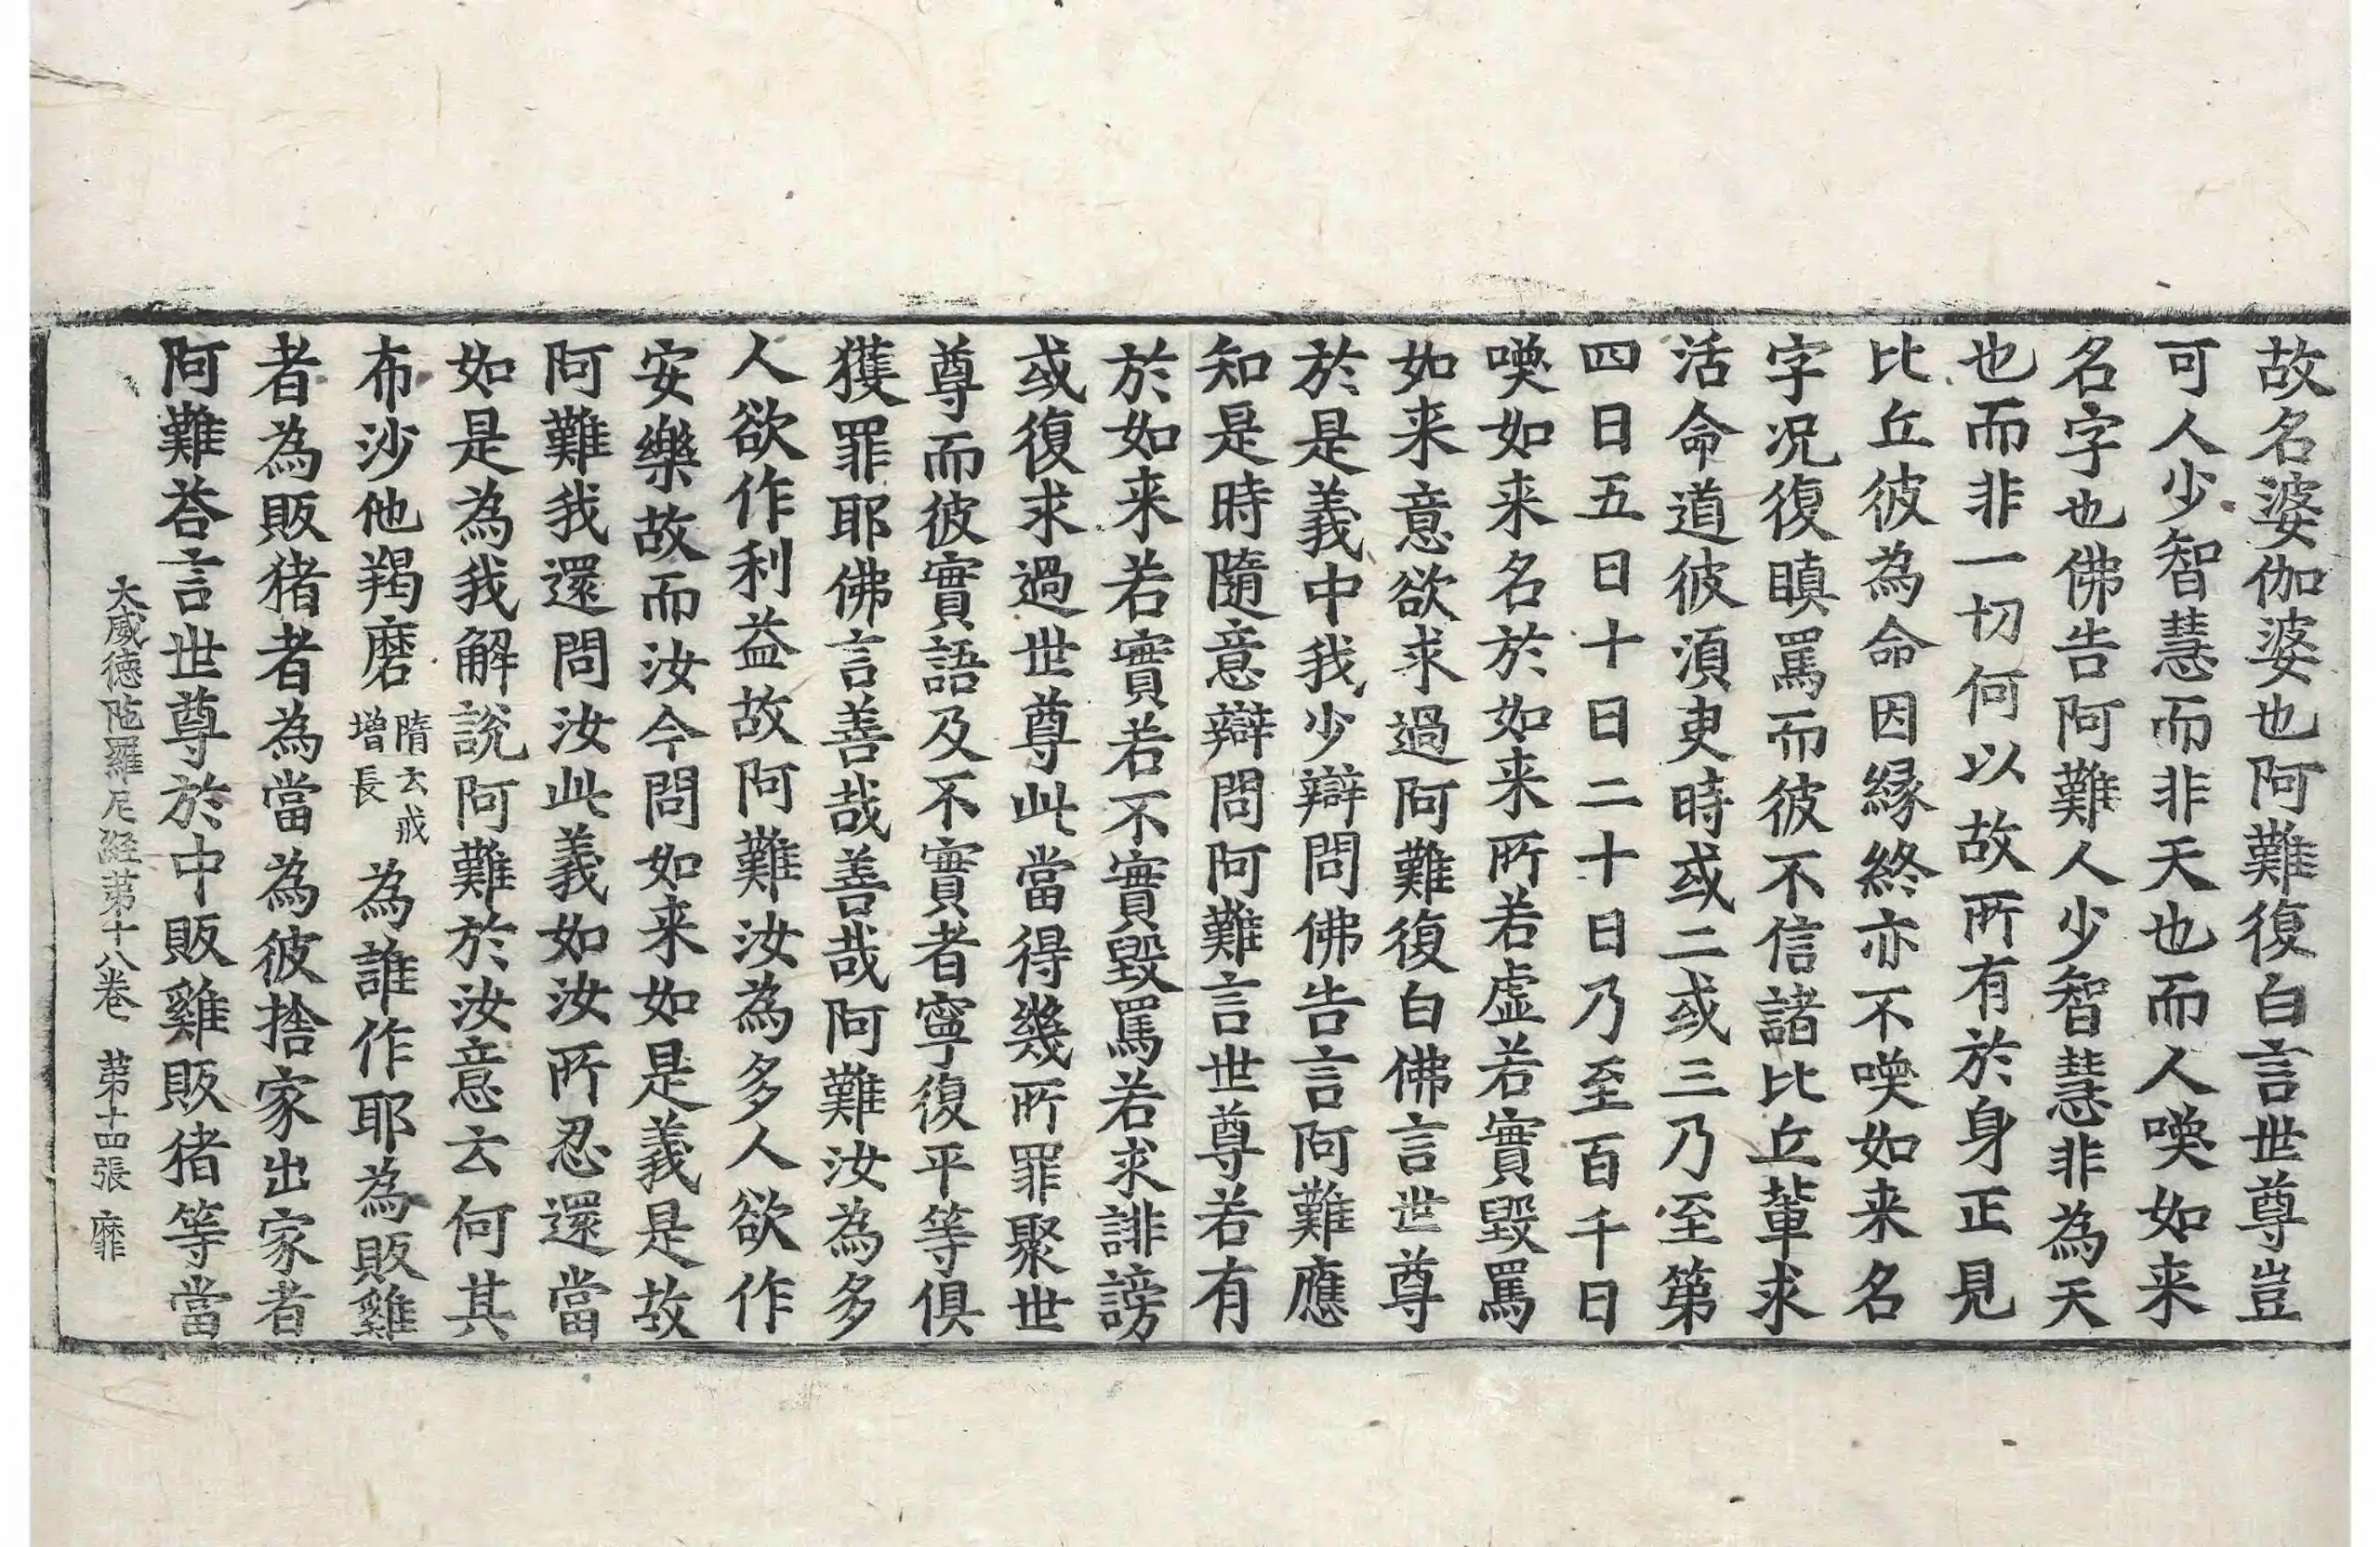 故名婆伽婆也阿難復白言世尊豈
可人少智慧而非天也而人喚如来
名字也佛告阿難人少智慧非為天
也而非一切何以故所有於身正見
比丘彼為命因縁終亦不喚如来名
字况復瞋罵而彼不信諸比丘輩求
活命道彼湏臾時或二或三乃至第
四日五日十日二十日乃至百千日
喚如来名於如来所若虚若實毀罵
如来意欲求過阿難復白佛言世尊
於是義中我少辯問佛告言阿難應
知是時隨意辯問阿難言世尊若有
於如来若實若不實毀罵若求誹謗
或復求過世尊此當得幾所罪聚世
尊而彼實語及不實者寧復平等俱
獲罪耶佛言善哉善哉阿難汝為多
人欲作利益故阿難汝為多人欲作
安樂故而汝今問如来如是義是故
阿難我還問汝此義如汝所忍還當
如是為我解說阿難於汝意云何其
布沙他羯磨隋云戒增長為誰作耶為販雞
者為販猪者為當為彼捨家出家者
阿難荅言世尊於中販雞販猪等當
大威德陁羅尼経第十八卷 第十四張 靡